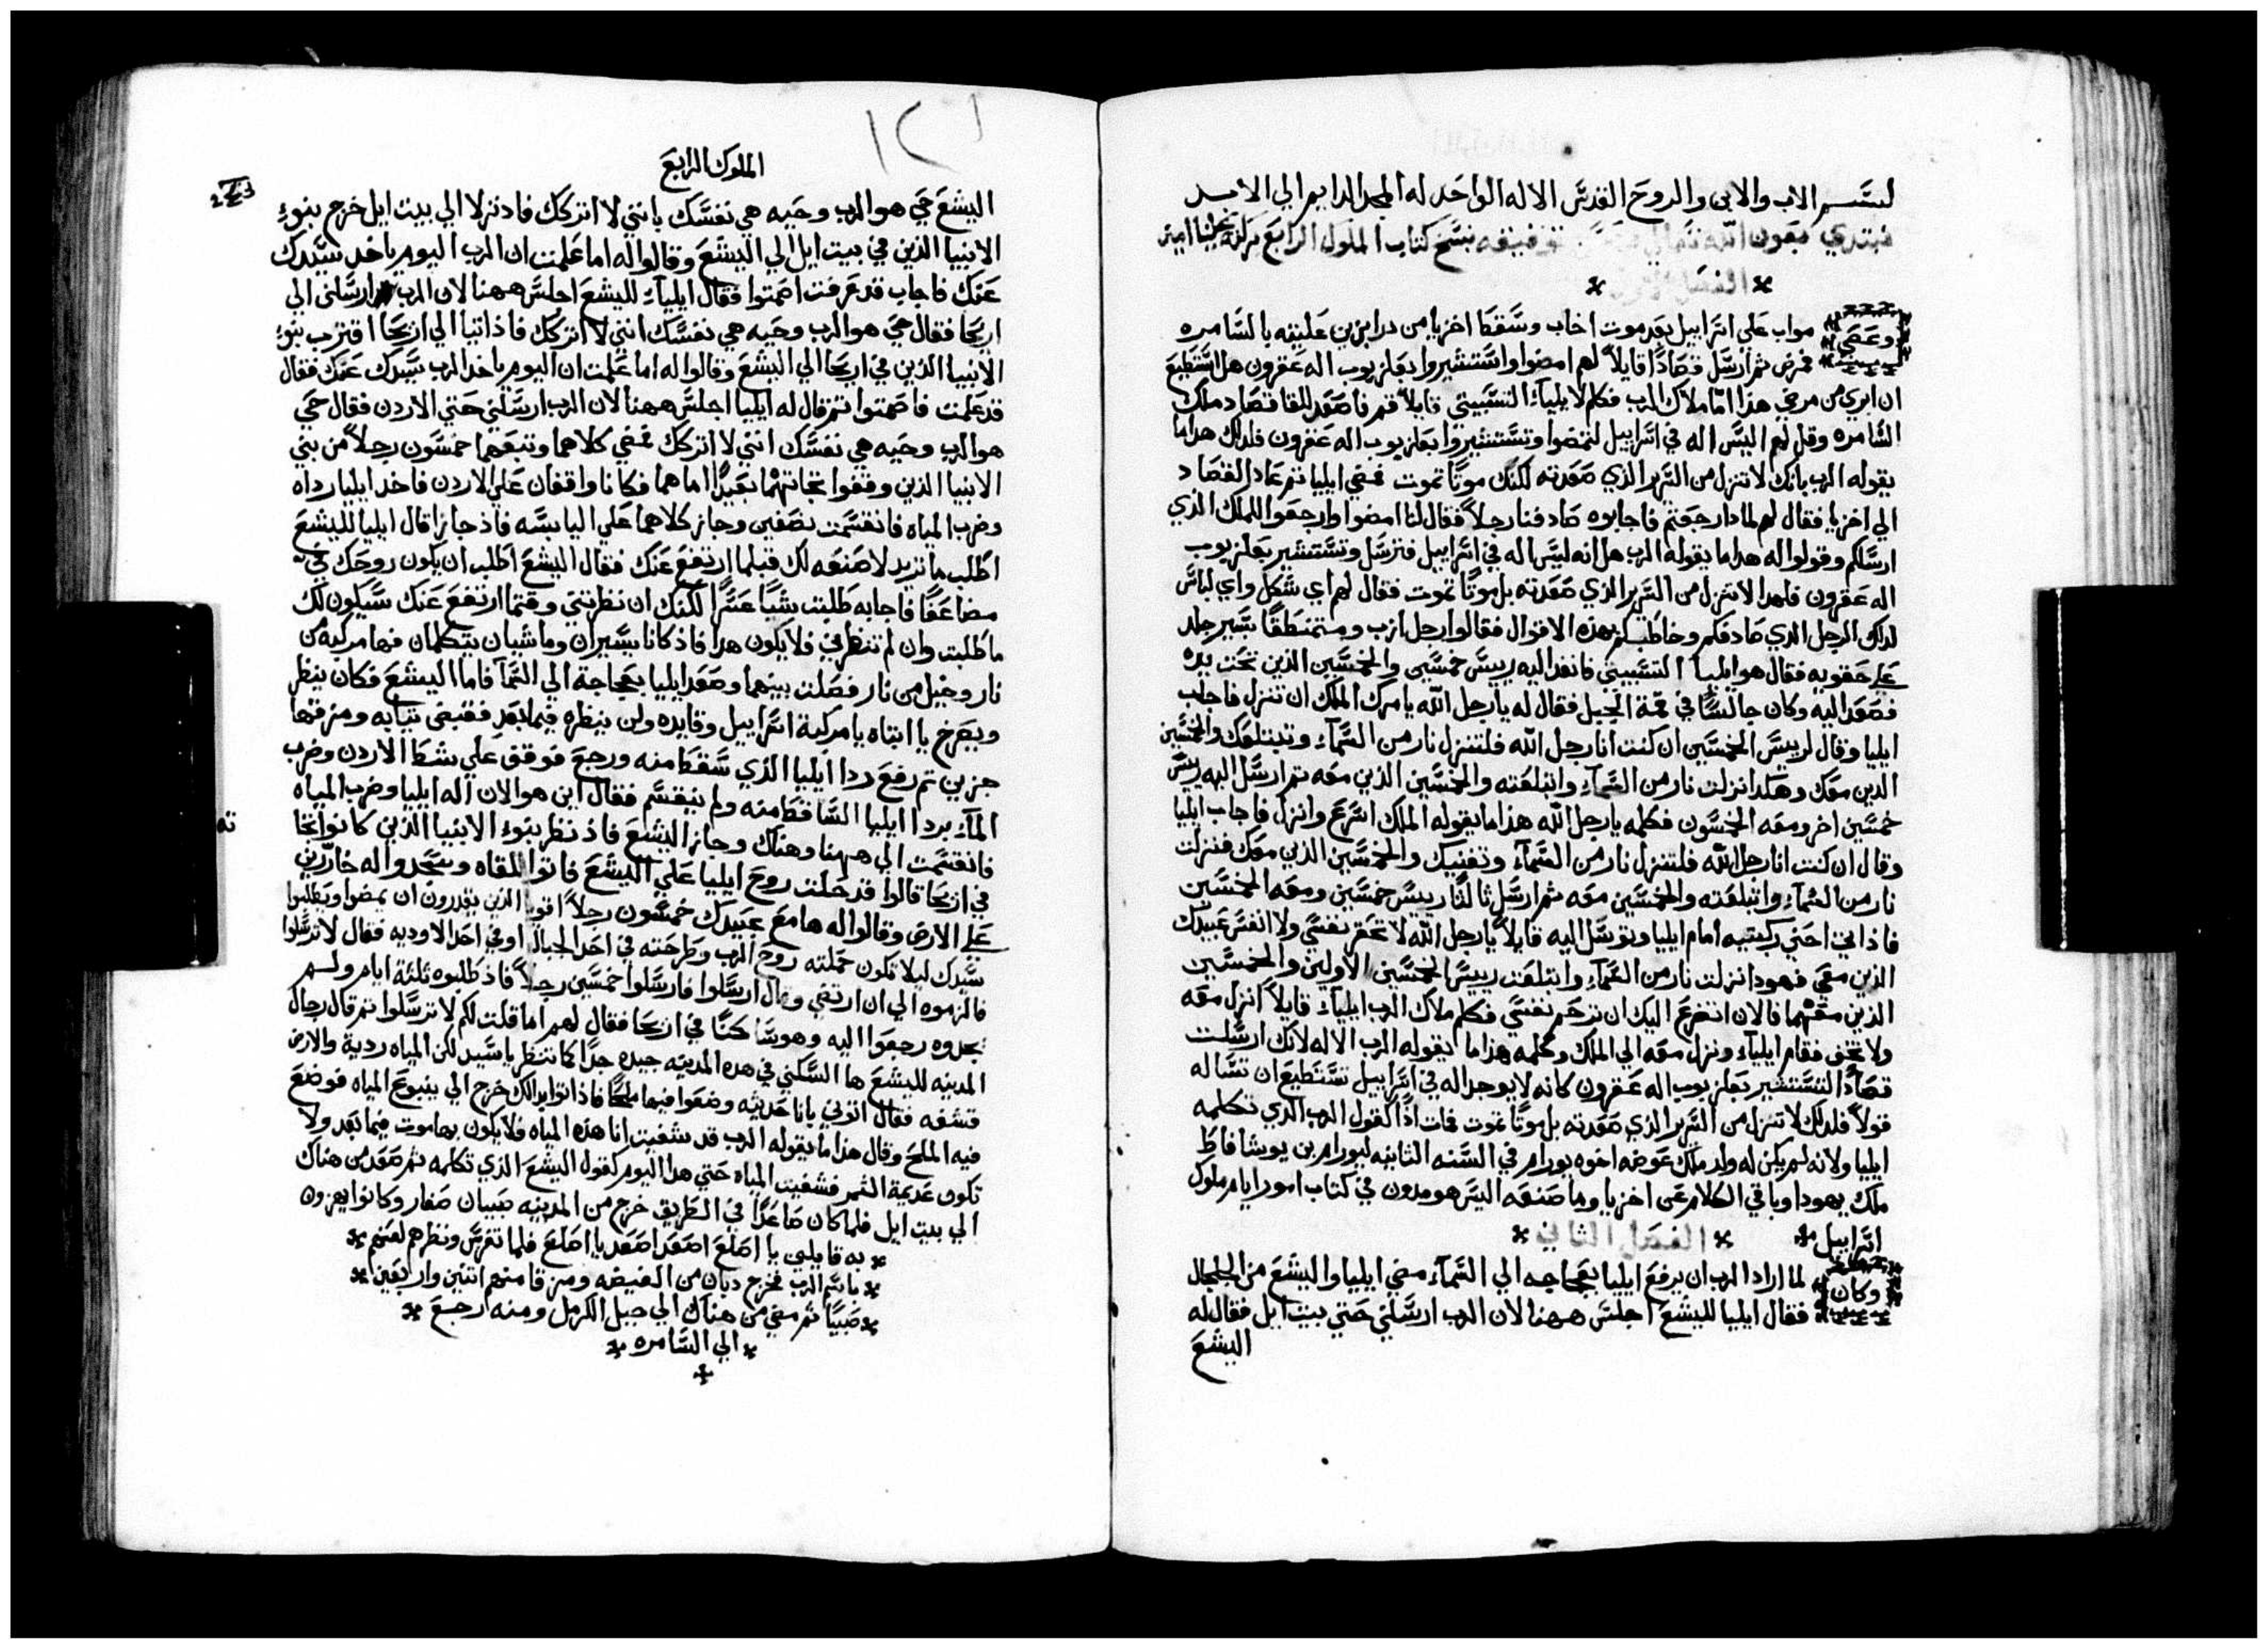 بسم الاب والابن والروح القدس الاله الواحد له المجد الدايم الي الابد
نبتدي بعون الله تعالي وحسن توفيقه بنسخ كتاب الملوك الرابع بركته تحلنا امين
الفصل الاول
وعصي مواب علي اسراييل بعد موت اخاب وسقط اخزيا من درابزين عليته بالسامره
فمرض ثم ارسل قصادًا قايلاً لهم امضوا واستشيروا بعلزبوب اله عقرون هل استطيع
ان ابري من مرضي هذا امّا ملاك الرب فكلم لايلياء التسبيتي قايلاً قم فاصعد للقا قصاد ملك
السامره وقل لهم اليس اله في اسراييل لتمضوا وتستشيروا بعلزبوب اله عقرون فلذلك هذا ما
يقوله الرب بانك لا تنزل من السرير الذي صعدته لكنك موتًا تموت فمضي ايليا ثم عاد القصاد
الي اخزيا فقال لهم لماذا رجعتم فاجابوه صادفنا رجلاً فقال لنا امضوا وارجعوا للملك الذي
ارسلكم وقولوا له هذا ما يقوله الرب هل انه ليس اله في اسراييل فترسل وتستشير بعلزبوب
اله عقرون فلهذا لا تنزل من السرير الذي صعدته بل موتًا تموت فقال لهم اي شكل واي لباس
لذلك الرجل الذي صادفكم وخاطبكم بهذه الاقوال فقالوا رجل ازب ومتمنطقًا بسير جلد
علي حقويه فقال هو ايليا التسبيتي فانفذ اليه رييس خمسين والخمسين الذين تحت يده
فصعد اليه وكان جالسًا في قمة الجبل فقال له يا رجل الله يامرك الملك ان تنزل فاجاب
ايليا وقال لرييس الخمسين ان كنت انا رجل الله فلتنزل نار من السماء وتبتلعك والخمسين
الذين معك وهكذا نزلت نار من السماء وابتلعته والخمسين الذين معه ثم ارسل اليه رييس
خمسين اخر ومعه الخمسون فكلمه يا رجل الله هذا ما يقوله الملك اسرع وانزل فاجاب ايليا
وقال ان كنت انا رجل الله فلتنزل نار من السماء وتفنيك والخمسين الذين معك فنزلت
نار من السماء وابتلعته والخمسين معه ثم ارسل ثالثًا رييس خمسين ومعه الخمسين
فاذ اتي احني ركبتيه امام ايليا وتوسل اليه قايلاً يا رجل الله لا تحقر نفسي ولا انفس عبيدك
الذين معي فهوذا نزلت نار من السماء وابتلعت رييسا الخمسين الاولين والخمسين
الذين معهما فالان اتضرع اليك ان ترحم نفسي فكلم ملاك الرب ايلياء قايلاً انزل معه
ولا تخف فقام ايلياء ونزل معه الي الملك وكلمه هذا ما يقوله الرب الاله لانك ارسلت
قصادًا لتستشير بعلزبوب اله عقرون كانه لا يوجد اله في اسراييل تستطيع ان تساله
قولاً فلذلك لا تنزل من السرير الذي صعدته بل موتًا تموت فمات اذًا كقول الرب الذي تكلمه
ايليا ولانه لم يكن له ولد ملك عوضه اخوه يورام في السنه الثانيه ليورام بن يوشافاط
ملك يهودا وباقي الكلام عن اخزيا وما صنعه اليس هو مدون في كتاب امور ايام ملوك
اسراييل الفصل الثاني
وكان لما اراد الرب ان يرفع ايليا بعجاجه الي السماء مضي ايليا واليشع من الجلجال
فقال ايليا لليشع اجلس ههنا لان الرب ارسلني حتي بيت ايل فقال له
اليشع
١٢١
الملوك الرابع
243
اليشع حي هو الرب وحيه هي نفسك بانني لا اتركك فاذ نزلا الي بيت ايل خرج بنوء
الانبيا الذين في بيت ايل الي اليشع وقالوا له اما علمت ان الرب اليوم ياخذ سيدك
عنك فاجاب قد عرفت اصمتوا فقال ايلياء لليشع اجلس ههنا لان الرب ارسلني الي
اريحا فقال حي هو الرب وحيه هي نفسك انني لا اتركك فاذ اتيا الي اريحا اقترب بنوء
الانبيا الذين في اريحا الي اليشع وقالوا له اما علمت ان اليوم ياخذ الرب سيدك عنك فقال
قد علمت فاصمتوا ثم قال له ايليا اجلس ههنا لان الرب ارسلني حتي الاردن فقال حي
هو الرب وحيه هي نفسك انني لا اتركك فمضي كلاهما وتبعهما خمسون رجلاً من بني
الانبيا الذين وقفوا تجاتهما بعيدًا اما هما فكانا واقفان علي الاردن فاخذ ايليا رداه
وضرب المياه فانقسمت نصفين وجاز كلاهما علي اليابسه فاذ جازا قال ايليا لليشع
اطلب ما تريد لاصنعه لك قبلما ارتفع عنك فقال اليشع اطلب ان يكون روحك فيّ
مضاعفًا فاجابه طلبت شيًا عسرًا لكنك ان نظرتني وقتما ارتفع عنك سيكون لك
ما طلبت وان لم تنظرني فلا يكون هذا فاذ كانا يسيران وماشيان يتكلمان فها مركبه من
نار وخيل من نار فصلت بينهما وصعد ايليا بعجاجة الي السما فاما اليشع فكان ينظر
ويصرخ يا ابتاه يا مركبة اسراييل وقايده ولن ينظره فيما بعد فقبض ثيابه ومزقها
جزين ثم رفع ردا ايليا الذي سقط منه ورجع فوقف علي شط الاردن وضرب
الماء بردا ايليا الساقط منه ولم ينقسم فقال اين هو الان اله ايليا وضرب المياه
فانقسمت الي ههنا وهناك وجاز اليشع فاذ نظر بنوء الانبيا الذين كانوا تجا
ته
في اريحا قالوا قد حلت روح ايليا علي اليشع فاتوا للقاه وسجدوا له خارّين
علي الارض وقالوا له ها مع عبيدك خمسون رجلاً اقويا الذين يقدرون ان يمضوا ويطلبوا
سيدك ليلا تكون حملته روح الرب وطرحته في احد الجبال او في احد الاوديه فقال لا ترسلوا
فالزموه الي ان ارتضي وقال ارسلوا فارسلوا خمسين رجلاً فاذ طلبوه ثلثة ايام ولم
يجدوه رجعوا اليه وهو ساكنًا في اريحا فقال لهم اما قلت لكم لا ترسلوا ثم قال رجال
المدينه لليشع ها السكني في هذه المدينه جيده جدًا كما تنظر يا سيد لكن المياه ردية والارض
قشفه فقال اتوني بانا حديثه وضعوا فيها ملحًا فاذ اتوا بذلك خرج الي ينبوع المياه فوضع
فيه الملح وقال هذا ما يقوله الرب قد شفيت انا هذه المياه فلا يكون بها موت فيما بعد ولا
تكون عديمة الثمر فشفيت المياه حتي هذا اليوم كقول اليشع الذي تكلمه ثم صعد من هناك
الي بيت ايل فلما كان صاعدًا في الطريق خرج من المدينه صبيان صغار وكانوا يهزون
به قايلين يا اصلع اصعد اصعد يا اصلع فلما تفرس ونظرهم لعنهم
باسم الرب فخرج دبان من الغيضه ومزقا منهم اثنين واربعين
صبيًا ثم مضي من هناك الي جبل الكرمل ومنه ارجع
الي السامره